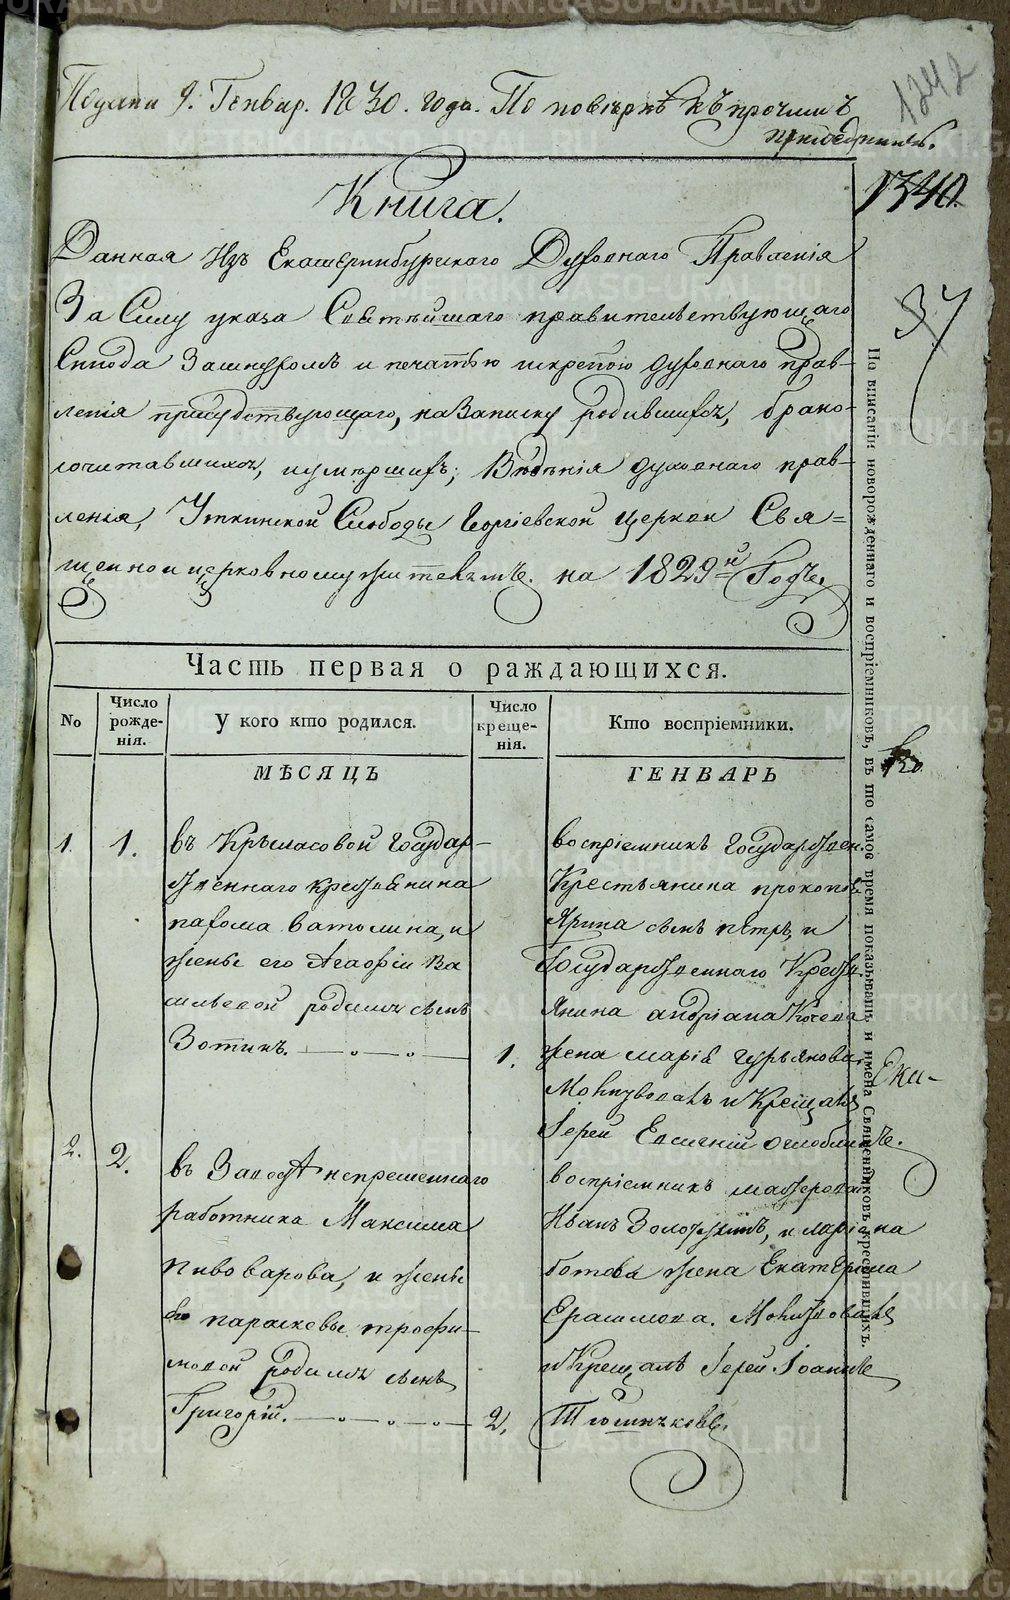 Генвар. 1830. года. По повѣркѣ къ прочимъ
1242
1340.
37
Книга.
Данная Изъ Екатеринбургскаго Духовнаго Правленія
За Силу указа Святѣйшаго правительствующаго
Синода Зашнуромъ и печатью искрепою духовнаго прав-
ленія присудствующаго, на Записку родившихся, брако-
сочитавшихся, иумершихъ; Вѣдѣнія духовнаго прав-
ленія, Уткинской Слободы Георгіевской церкви Свя=
щенно и церковнослужителямъ. на 1829й Годъ.
Часть первая о раждающихся.
No
Число рожде-нія.
У кого кто родился.
Число креще-нія.
Кто воспріемники.
МѢСЯЦЪ
ГЕНВАРЬ
1. 1.
въ Крыласовой Государ-
ственнаго крестьянина
пахома Ватолина, и
жены его Агафіи Ва
сильевой родился сынъ
Зотикъ. 1.
воспріемникъ Государствен.
Крестьянина прокопія
Ярина сынъ пётръ, и
Государственнаго Кресть-
янина андріана
жена марія гурьянова.
Молитвовалъ и Крещалъ
Іерей Евгеній Оглоблинъ.
2. 2.
въ Заводѣ непременнаго
работника Максима
Пивоварова, и жены
его параскевы трофи-
мовой родился сынъ
Григорій. 2.
воспріемникъ мастероваго
Иванъ и ларіона
ботева жена Екатерина
Ерашмова. Молитвовалъ
и Крещалъ Іерей Іоаннъ
По вписаніи новорожденнаго и воспріемниковъ, въ то самое время показывать и имена Священниковъ крестившихъ.
Ека-
METRIKI.GASO-URAL.RU